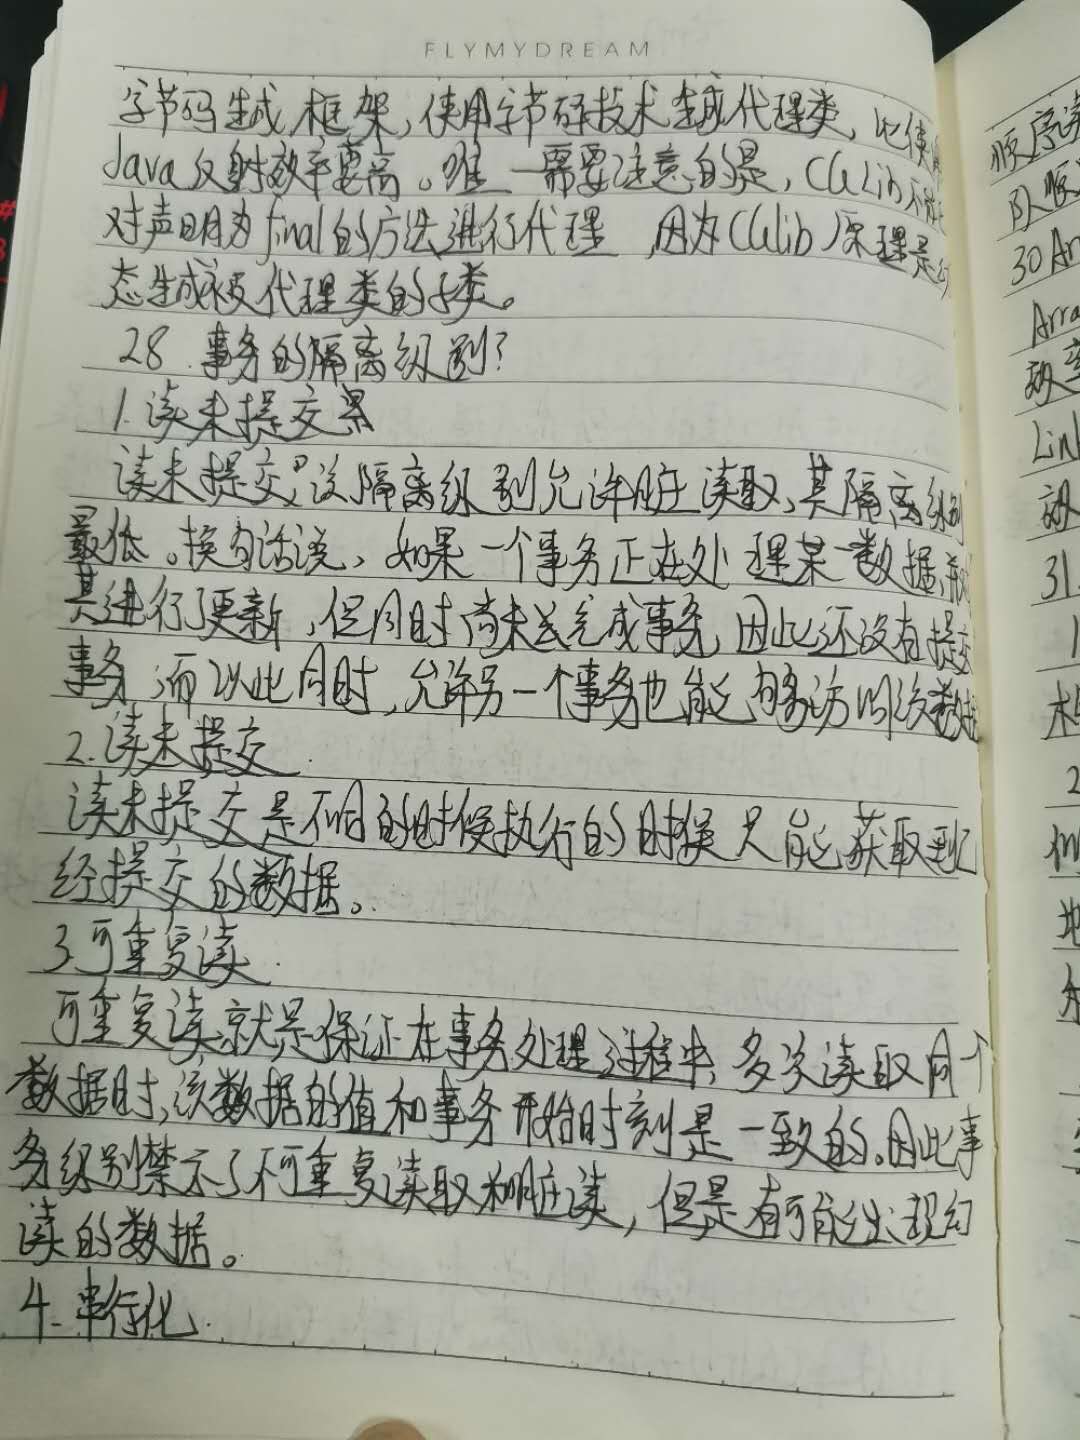 FLYMYDREAM
字节码生成框架,使用字节码技术生成代理类,比使用
Java反射效率要高。唯一需要注意的是,CGLib不能
对声明为final的方法进行代理,因为CGlib原理是动
态生成被代理类的子类。
28.事务的隔离级别?
1.读未提交
读未提交,该隔离级别允许脏读取,其隔离级别
最低。换句话说,如果一个事务正在处理某一数据,并对
其进行了更新,但同时尚未完成事务,因此还没有提交
事务,而以此同时,允许另一个事务也能够访问该数据
2.读未提交
读未提交是不同的时候执行的时候只能获取到已
经提交的数据。
3.可重复读
可重复读就是保证在事务处理过程中,多次读取同一个
数据时,该数据的值和事务开始时刻是一致的。因此事
务级别禁示了不可重复读取和脏读,但是有可能出现幻
读的数据。
4.串行化
顺序读
队
30 Ar
Arra
效率
Link
效
31.
1
2
地